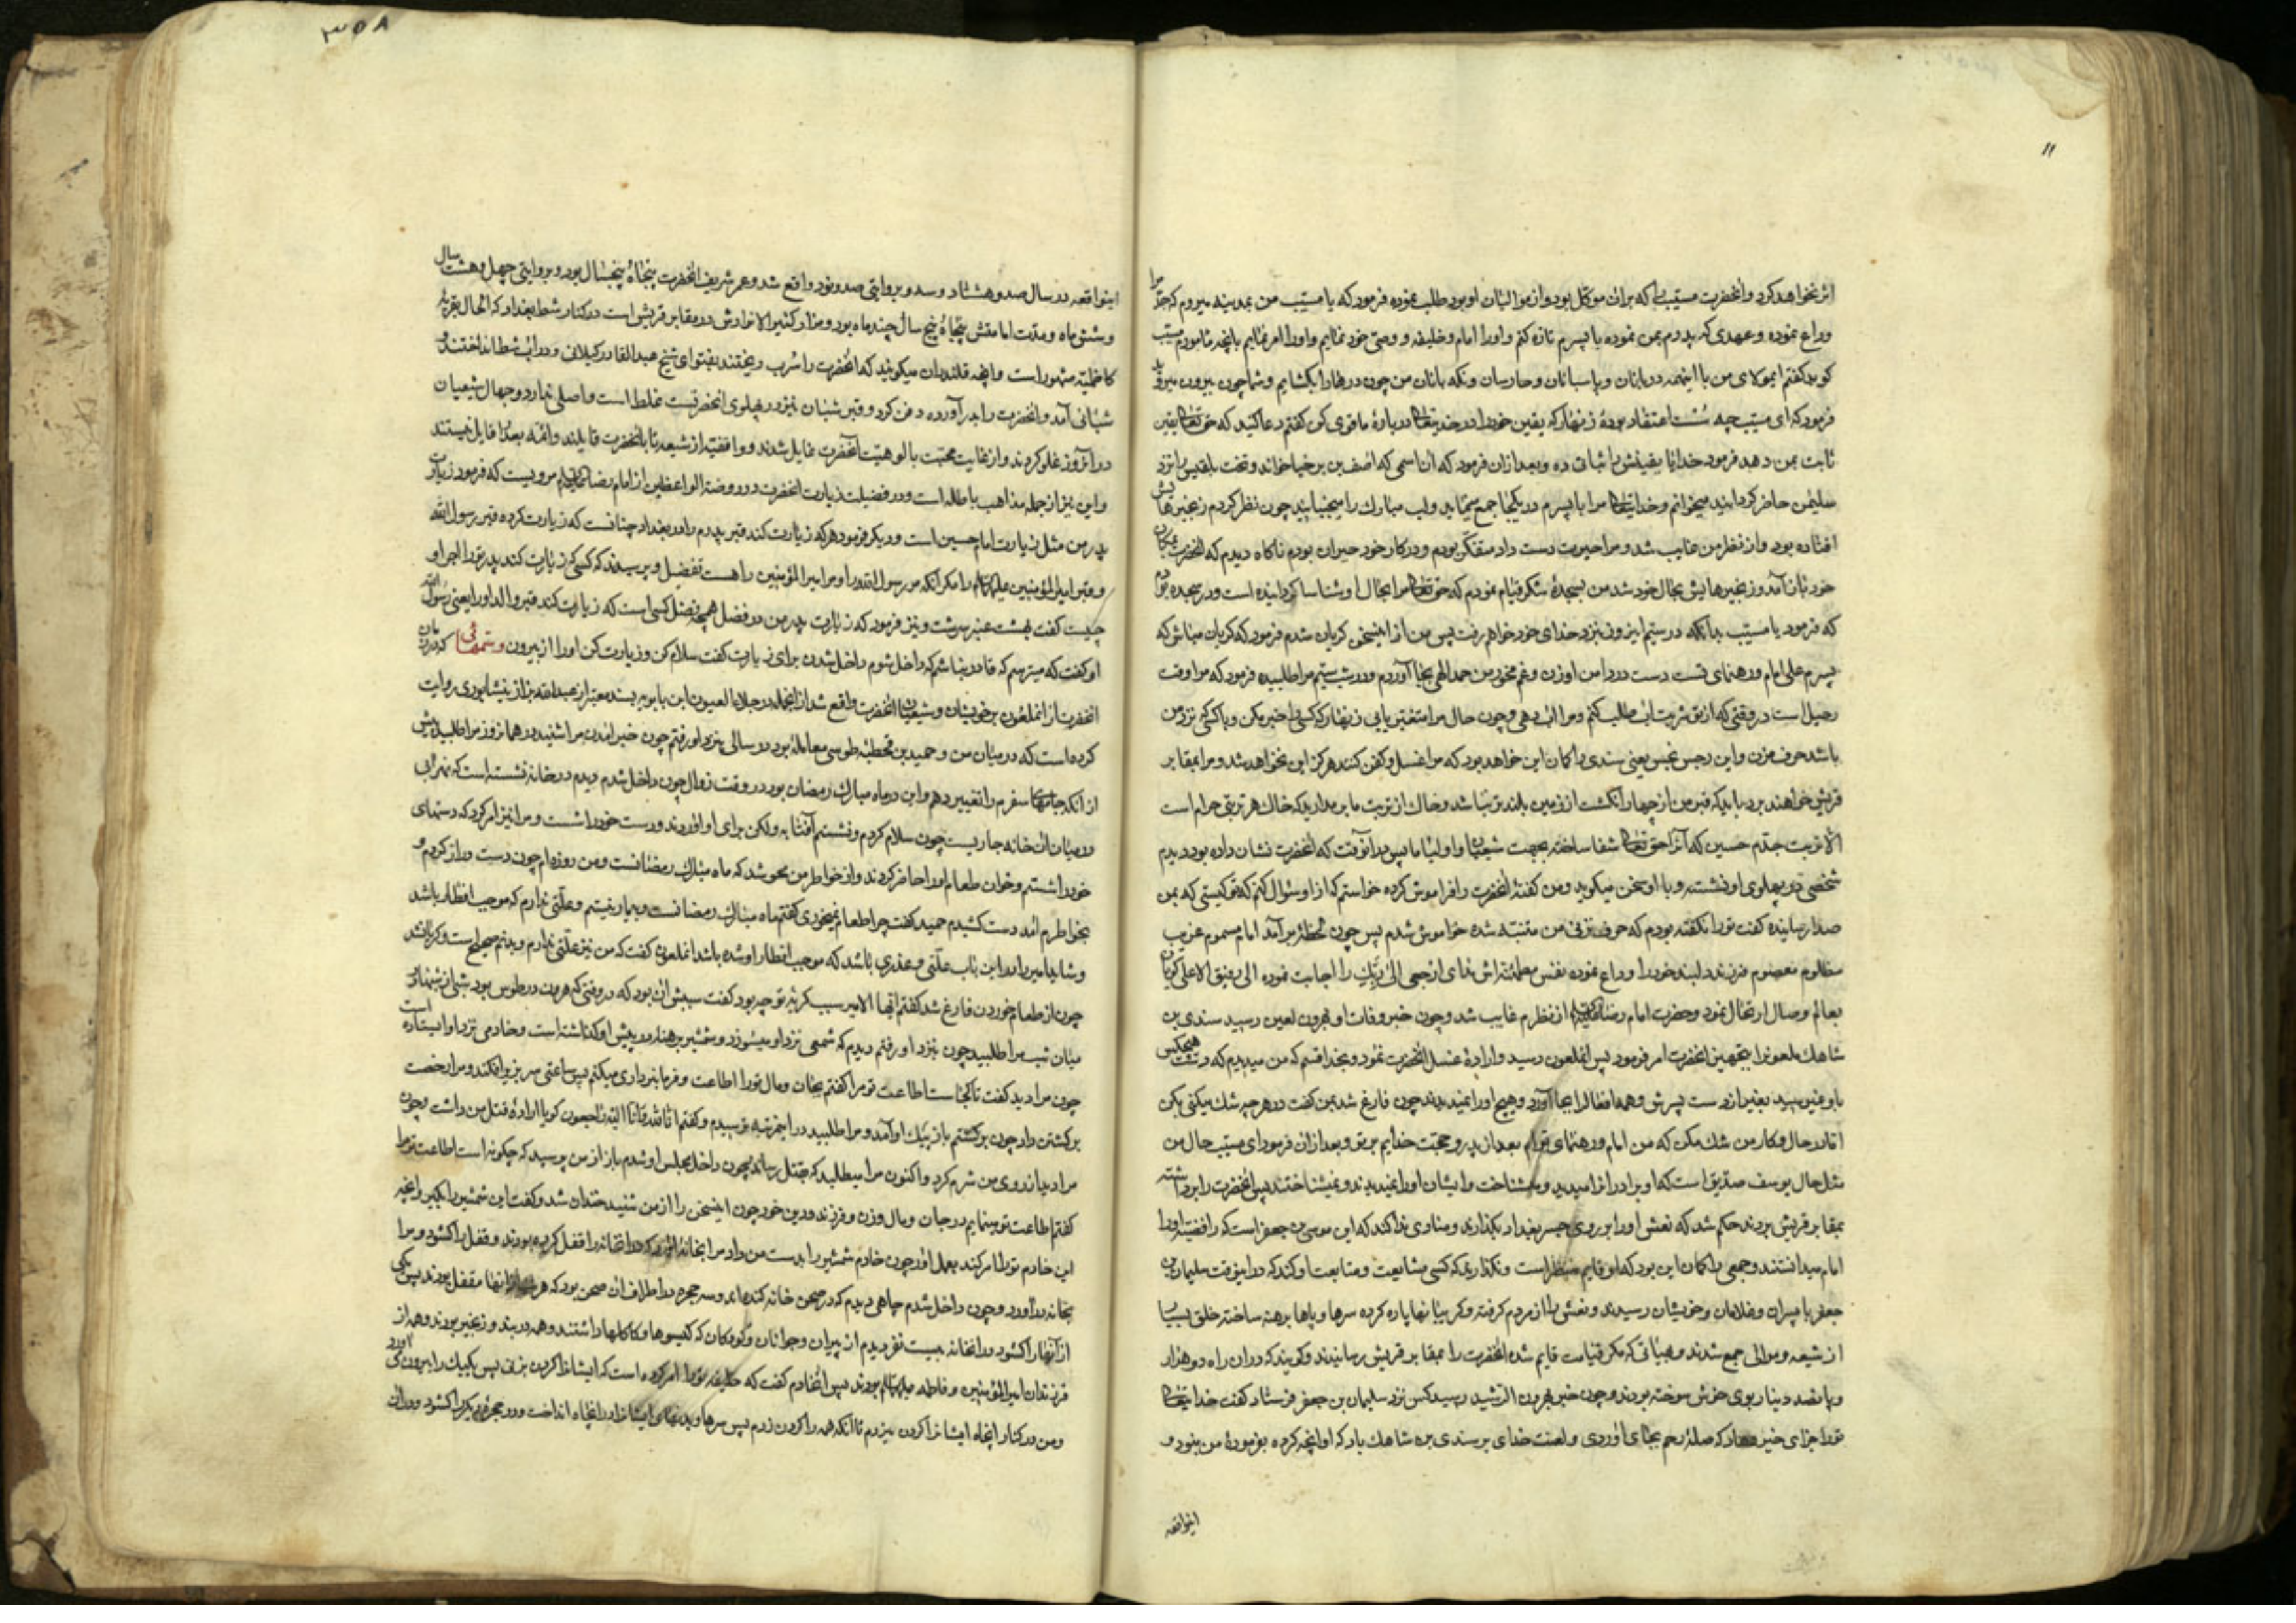 ۱۱
اثر نخواهد کرد و آنحضرت مسیب را که بران موکل بود و از موالیان او بود طلب نموده فرمود که یا مسیب من بمدینه میروم که جد مرا
وداع نموده و عهدی که پدرم بمن نموده با پسرم تازه کنم و اورا امام و خلیفه و وصی خود نمایم و اورا امر نمایم بانچه مامورم مسیب
کوید کفتم ایمولای من با اینهمه دربانان و پاسبانان و حارسان و نکه بانان من چون درها را بکشایم و شما چون بیرون میروید
فرمود که ای مسیب چه سست اعتقاد بودهٔ زنهار که یقین خود را در خدیتعالی در بارهٔ ما قوی کن کفتم دعا کنید که حق تعالی یقین
ثابت بمن دهد فرمود خدایا یقینش را ثباتی ده و بعد ازان فرمود که آن اسمی که اصف بن برخیا خواند و تخت بلقیس را نزد
سلیمن حاضر کردانید میخوانم و خدایتعالی مرا با پسرم در یکجا جمع مینماید و لب مبارک را میجنبانید چون نظر کردم زنجیرها پیش
افتاده بود و از نظر من غایب شد و مرا حیرت دست داد متفکر بودم و در کار خود حیران بودم ناکاه دیدم که آنحضرت بمکان
خود بازآمد و زنجیرهایش بحال خود شد من بسجدهٔ شکر قیام نمودم که حق تعالی مرا بحال او شناسا کردانیده است و در سجده بودم
که فرمود یا مسیب بدانکه در سیم ایزون نزد خدای خود خواهم رفت پس من از اینسخن کریان شدم فرمود که کریان مباش که
پسرم علی امام و رهنمای تست دست در دامن او زن و غم مخور من حمد الهی بجا آوردم و در شب سیم مرا طلبیده فرمود که مرا وقت
رحیل است در وقتی که از تو شربت ابی طلب کنم و مرا اب دهی و چون حال مرا متغیر یابی زنهار که کسی را خبر مکن و با کسی که نزد من
باشد حرف مزن و این رجس نجس یعنی سندی را کمان این خواهد بود که مرا غسل و کفن کنند هرکز این نخواهد شد و مرا بمقابر
قریش خواهند برد باید که قبر من از چهار انکشت از زمین بلندتر نباشد و خاک از تربت ما بر مدارید که خاک هر تربتی حرام است
الا تربت جدم حسین که آنرا حق تعالی شفا ساخته بجهت شیعیان و اولیا ما پس در آنوقت که آنحضرت نشان داده بود دیدم
شخصی در پهلوی او نشسته و با او سخن میکوید و من کفتهٔ آنحضرت را فراموش کرده خواستم که از او سئوال کنم که تو کیستی که بمن
صدا رسانیده کفت تورا نکفته بودم که حرف نزنی من متنبه شده خاموش شدم پس چون لحظهٔ برآمد امام مسموم غریب
مظلوم معصوم فرزند دلبند خود را وداع نموده نفس مطمئنه‌اش ندای ارجعی الی ربک را اجابت نموده الی رفیق الاعلی کویان
بعالم وصال ارتحال نمود و حضرت امام رضا از نظرم غایب شد و چون خبر وفات او بهرون لعین رسید سندی بن
شاهک ملعونرا بتجهیز آنحضرت امر فرمود پس آنملعون رسید و ارادهٔ غسل آنحضرت نمود و بخدا قسم که من میدیدم که دست هیچکس
باو نمیرسید بغیر از دست پسرش و همه افعال را بجا آورد و هیچ اورا نمیدیدند چون فارغ شد بمن کفت در هر چیر شک میکنی بکن
اما در حال و کار من شک مکن که من امام و رهنمای توام بعد از پدر و حجت خدایم بر تو و بعد ازان فرمود ای مسیب حال من
مثل حال یوسف صدیق است که او برادرانرا میدید و میشناخت و ایشان اورا نمیدیدند و نمیشناختند پس آنحضرت را برداشته
بمقابر قریش بردند حکم شد که نعش اورا بر روی جسر بغداد بکذارند و منادی ندا کند که این موسی بن جعفر است که رافضیه اورا
امام میدانستند و جمعی را کمان این بود که او قایم منتظر است و نکذارید که کسی مشایعت و متابعت او کند که در اینوقت سلیمان بن
جعفر با پسران و غلامان و خویشان رسیدند و نعش را از مردم کرفته و کریبانها پاره کرده سرها و پاها برهنه ساخته خلق بسیار
از شیعه و موالی جمع شدند و بهیأتی که مکر قیامت قایم شده آنحضرت را بمقابر قریش رسانیدند و کویند که دران راه دو هزار
و پانصد دینار بوی خوش سوخته بودند و چون خبر بهرون الرشید رسید کس نزد سلیمان بن جعفر فرستاد کفت خدایتعالی
تورا جزای خیر دهاد که صلهٔ رحم بجای آوردی و لعنت خدای بر سندی بن شاهک باد که او آنچه کرده بفرمودهٔ من نبود و
اینواقعه
۳۵۸
اینواقعه در سال صد و هشتاد و سه و بروایتی صد و نود واقع شد و عمر شریف آنحضرت پنجاه و پنجسال بود و بروایتی چهل و هشت سال
و شش ماه و مدت امامتش پنجاه و پنج سال چند ماه بود و مزار کثیر الانوارش در مقابر قریش است در کنار شط بغداد که الحال بقریهٔ
کاظمیه مشهور است و آنچه قلندران میکویند که آنحضرت را سرب ریختند بفتوای شیخ عبدالقادر کیلانی و در اب شط انداختند
شبانی آمد و آنحضرت را بدر آورده دفن کرد و قبر شبان نیز در پهلوی آنحضرتست غلط است و اصلی ندارد و جهال شیعیان
در آنروز غلو کردند و از غایت محبت بالوهیت آنحضرت قایل شدند و واقفیه از شیعه تا بآنحضرت قایلند و ائمه بعد را قایل نیستند
و این نیز از جمله مذاهب باطله است و در فضیلت زیارت آنحضرت در روضة الواعظین از امام رضا مرویست که فرمود زیارت
پدر من مثل زیارت امام حسین است و دیکر فرمود هر که زیارت کند قبر پدرم را در بغداد چنانست که زیارت کرده قبر رسول الله
و قبر امیر المؤمنین علیهما السلام را مکر آنکه مر رسول الله را و مر امیر المؤمنین را هست تفضیل و پرسیدند که کسی که زیارت کند پدر تورا اجر او
چیست کفت بهشت عنبر سرشت و نیز فرمود که زیارت پدر من در فضل همچو فضل کسی است که زیارت کند قبر والد اورا یعنی رسول الله
او کفت که میترسم که قادر نباشم که داخل شوم داخل شدن برای زیارت کفت سلام کن و زیارت کن اورا از بیرون و ستمهائی که در زمان
آنحضرت از آنملعون بر خویشان و شیعیان آنحضرت واقع شد از آنجمله در جلاء العیون ابن بابویه بسند معتبر از عبدالله بزاز نیشابوری روایت
کرده است که در میان من و حمید بن قحطبهٔ طوسی معاملهٔ بود در سالی بنزد او رفتم چون خبر آمدن مرا شنید در همانروز مرا طلبید پیش
از آنکه جامهای سفرم را تغییر دهم و این در ماه مبارک رمضان بود در وقت زوال چون داخل شدم دیدم در خانه نشسته است که نهر آبی
در میان آن خانه جاریست چون سلام کردم و نشستم آفتابه و لکن برای او آوردند و دست خود را شست و مرا نیز امر کرد که دستهای
خود را شستم و خوان طعام اورا حاضر کردند و از خواطر من محو شد که ماه مبارک رمضانست و من روزه‌ام چون دست دراز کردم و
بخواطرم آمد دست کشیدم حمید کفت چرا طعام نمیخوری کفتم ماه مبارک رمضانست و بیمار نیستم و علتی ندارم که موجب افطار باشد
و شاید امیر را در این باب علتی و عذری باشد که موجب افطار او شده باشد آنملعون کفت که من نیز علتی ندارم و بدنم صحیح است و کریان شد
چون از طعام خوردن فارغ شد کفتم ایها الامیر سبب کریهٔ تو چه بود کفت سببش آن بود که در وقتی که هرون در طوس بود شبی از شبها در
میان شب مرا طلبید چون بنزد او رفتم دیدم که شمعی نزد او میسوزد و شمشیر برهنه در پیش او کذاشته است و خادمی نزد او ایستاده است
چون مرا دید کفت تا کجا است اطاعت تو مرا کفتم بجان و مال تورا اطاعت و فرمانبرداری میکنم پس ساعتی سر بزیر افکند و مرا رخصت
برکشتن داد چون برکشتم باز پیک او آمد و مرا طلبید در اینمرتبه ترسیدم و کفتم انا لله و انا الیه راجعون کویا ارادهٔ قتل من داشت و چون
مرا دید از روی من شرم کرد و اکنون مرا میطلبد که بقتل رساند چون داخل مجلس او شدم باز از من پرسید که چکونه است اطاعت تو مرا
کفتم اطاعت تو مینمایم در جان و مال و زن و فرزند و دین خود چون اینسخن را از من شنید خندان شد و کفت این شمشیر را بکیر و آنچه
این خادم تورا امر کند بعمل آور چون خادم شمشیر را بدست من داد مرا بخانهٔ آورد که در آنخانه را قفل کرده بودند و قفل را کشود و مرا
بخانه درآورد و چون داخل شدم چاهی دیدم که در صحن خانه کنده‌اند و سه حجره در اطراف آن صحن بود که هر یک از انها مقفل بودند پس یکی
از آنها را کشود در آنخانه بیست نفر دیدم از پیران و جوانان و کودکان که کیسوها و کاکلها داشتند و همه در بند و زنجیر بودند و همه از
فرزندان امیر المؤمنین و فاطمه علیهما السلام بودند پس آنخادم کفت که خلیفه تورا امر کرده است که ایشانرا کردن بزنی پس یکیک را بیرون می آورد
و من در کنار آنچاه ایشانرا کردن میزدم تا آنکه همه را کردن زدم پس سرها و بدنهای ایشانرا در آنچاه انداخت و در حجرهٔ دیکر را کشود و در آن